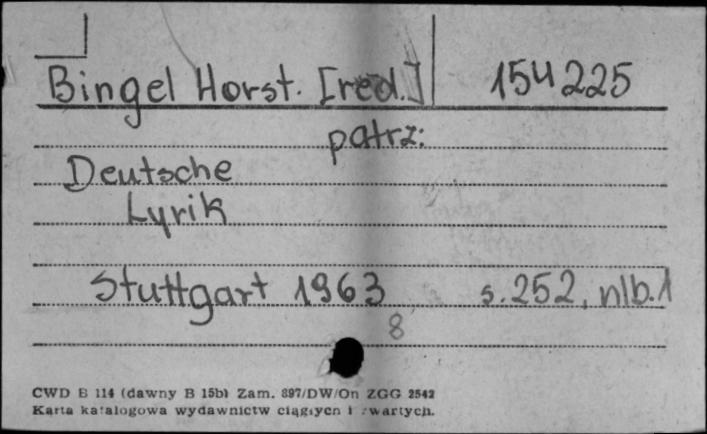 Bingel Horst. [red.] 154225
patrz:
Deutsche
Lyrik
Stuttgart 1963 s. 252, nlb. 1
8
CWD B 114 (dawny B 15b) Zam. 897/DW/On ZGG 2542
Karta katalogowa wydawnictw ciągłych i zwartych.